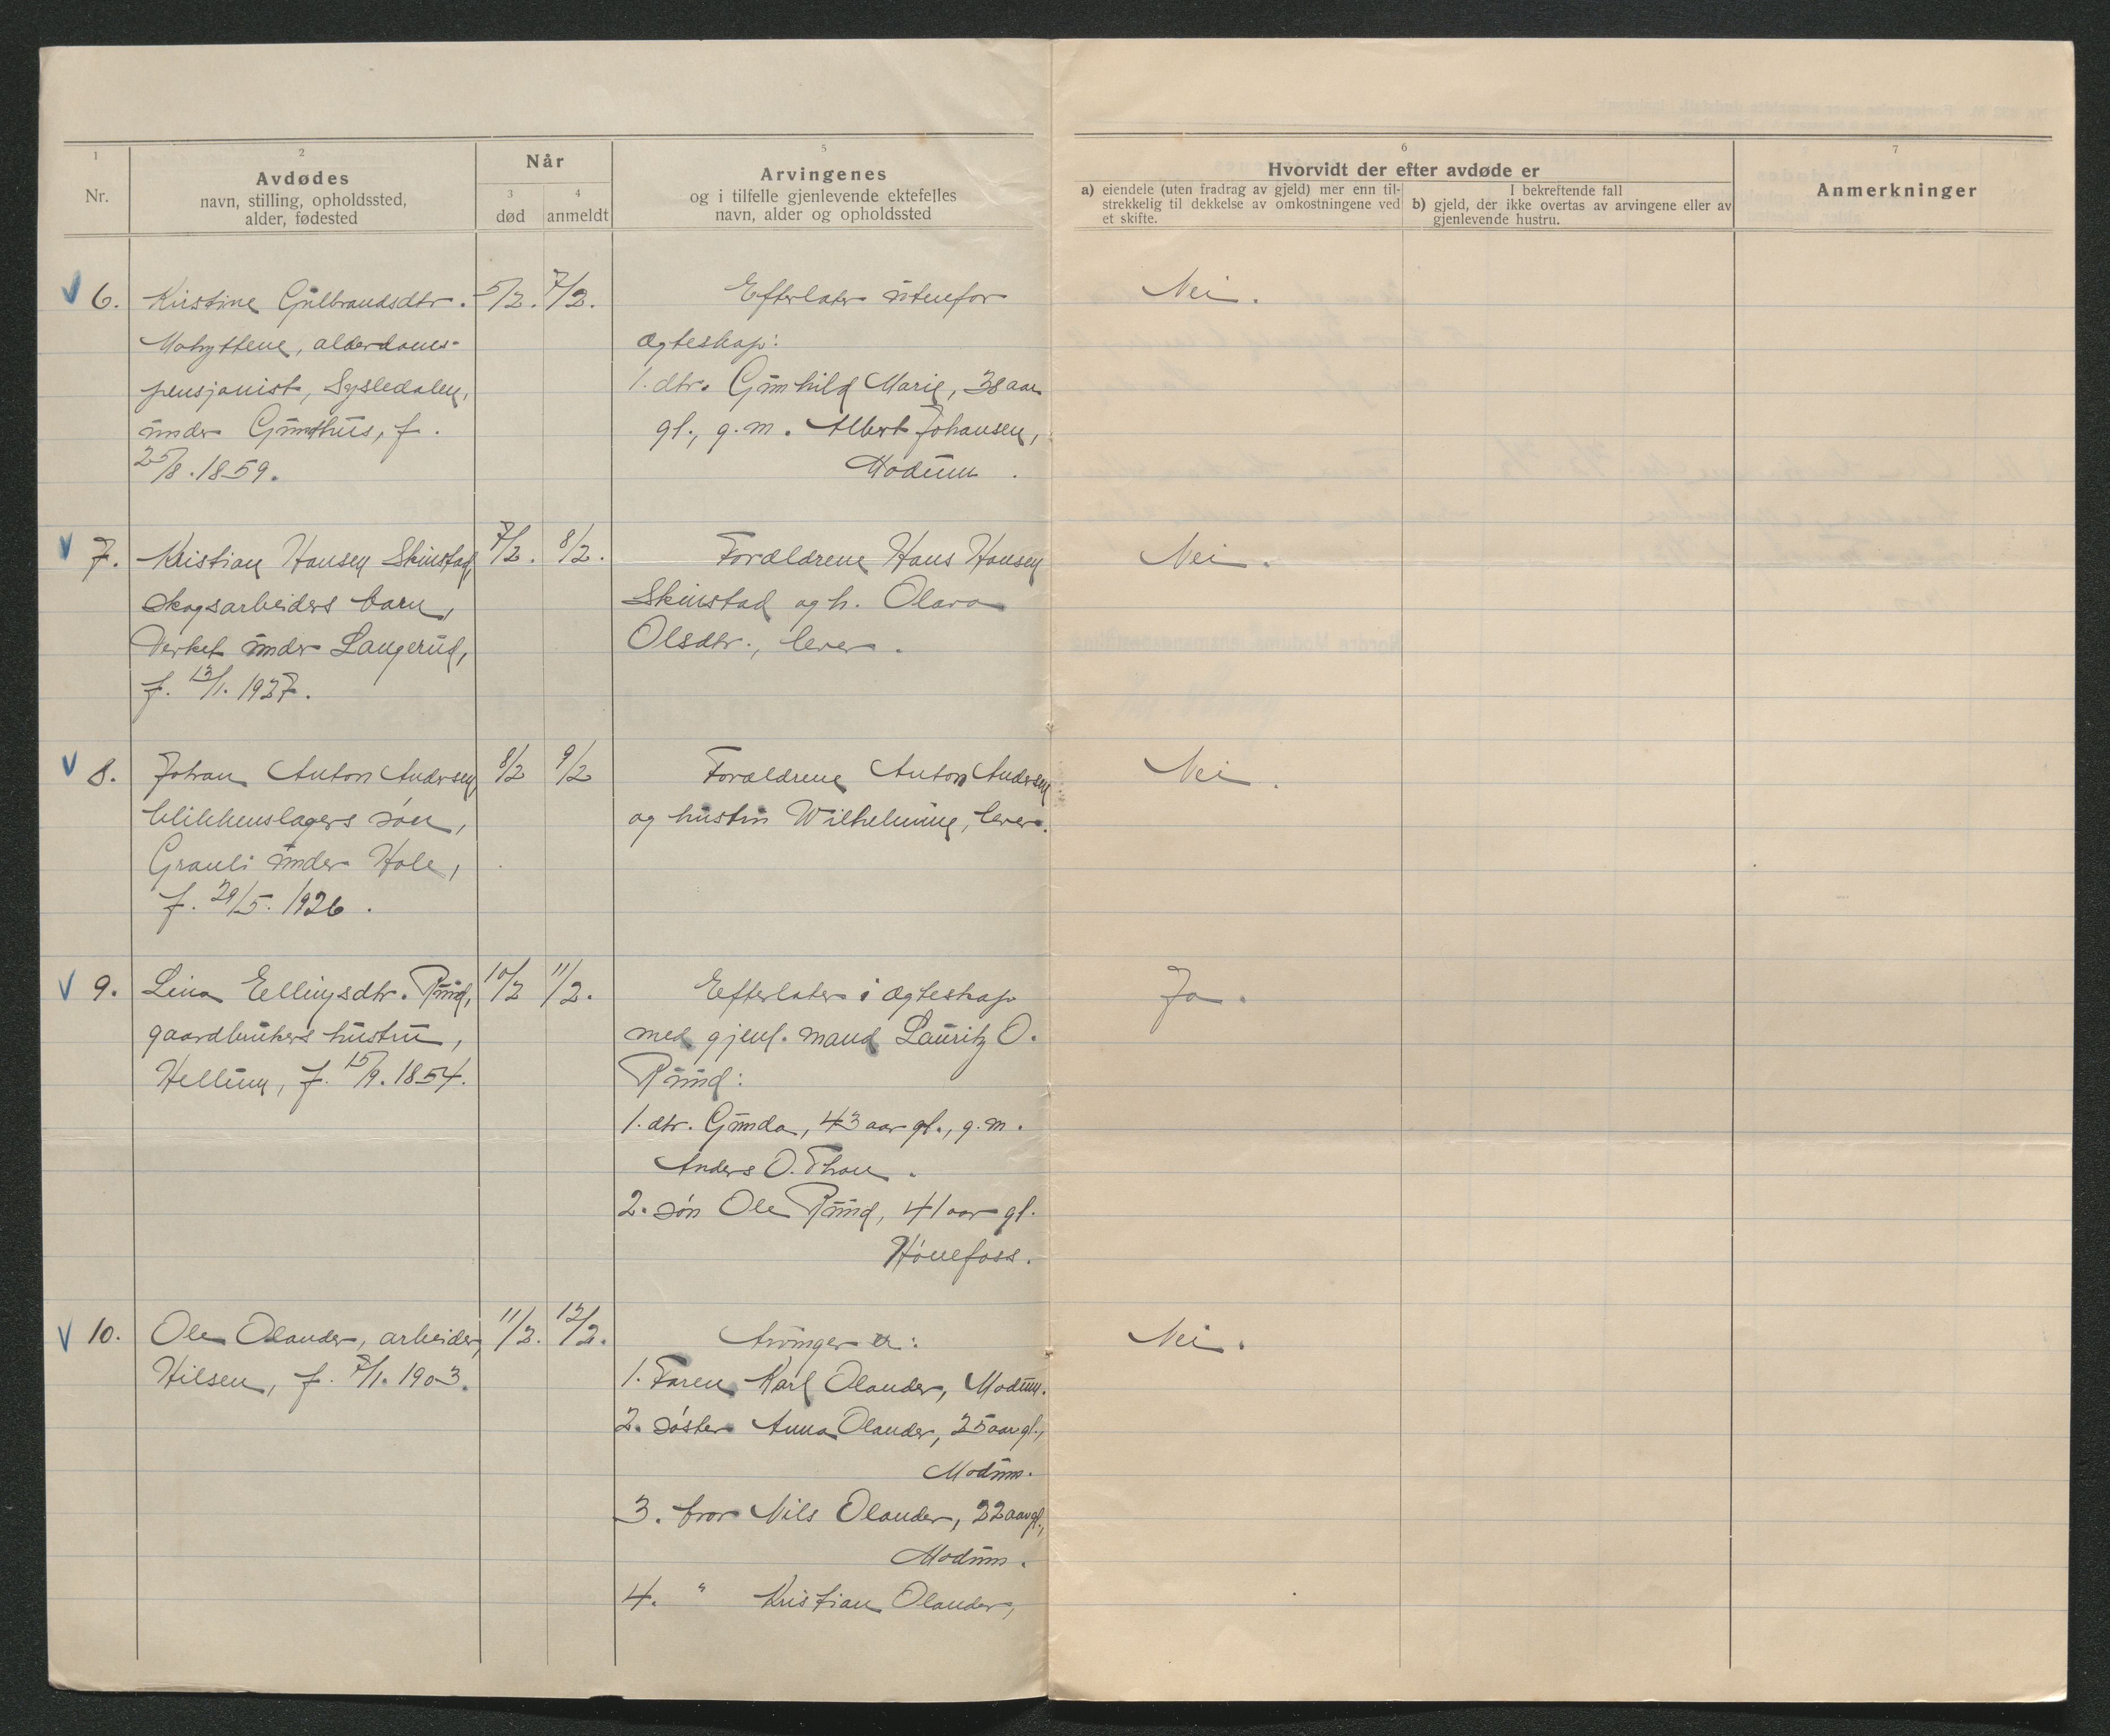 1
Nr.
2
Avdødes
navn, stilling, opholdssted,
alder, fødested
Når
3
død
4
anmeldt
5
Arvingenes
og i tilfelle gjenlevende ektefelles
navn, alder og opholdssted
6
Hvorvidt der efter avdøde er
a) eiendele (uten fradrag av gjeld) mer enn til-
strekkelig til dekkelse av omkostningene ved
et skifte.
I bekreftende fall
b) gjeld, der ikke overtas av arvingene eller av
gjenlevende hustru.
7
Anmerkninger
6.
Kirstine Gulbrandsdtr.
Mohyttene, alderdoms-
pensjonist, Sysledalen,
under Gunhus, f.
25/8.1859.
5/2.
7/2.
Efterlater utenfor
ægteskap:
1. dtr. Gunhild Marie, 38 aar
gl., g.m. Albert Johansen,
Modum.
Nei.
7.
Kristian Hansen Skinstad,
skogsarbeiders barn,
Verket under Langerud,
f. 13/1. 1927.
7/2.
8/2.
Forældrene Hans Hansen
Skinstad og h. Olava
Olsdtr., lever.
Nei.
8.
Johan Anton Andersen,
blikkenslagers søn,
Grauli under Hole,
f. 29/5. 1926.
8/2
9/2
Forældrene Anton Andersen
og hustru Wilhelmine, lever.
Nei.
9.
Lina Ellingsdtr. Ruud,
gaardbrukers hustru,
Hellum, f. 15/9. 1854.
10/2
11/2.
Efterlater i ægteskap
med gjenl. mand Lauritz O.
Ruud:
1. dtr. Gunda, 43 aar gl., g.m.
Anders O. Thon.
2. søn Ole Ruud, 41 aar gl.
Hønefoss.
Ja.
10.
Ole Olander, arbeider,
Hilsen, f. 7/1. 1903.
11/2.
12/2.
Arvinger er:
1. Faren Karl Olander, Modum.
2. søster Anna Olander, 25 aar gl.,
Modum.
3. bror Nils Olander, 22 aar gl.,
Modum.
4. " Kristian Olander,
Nei.